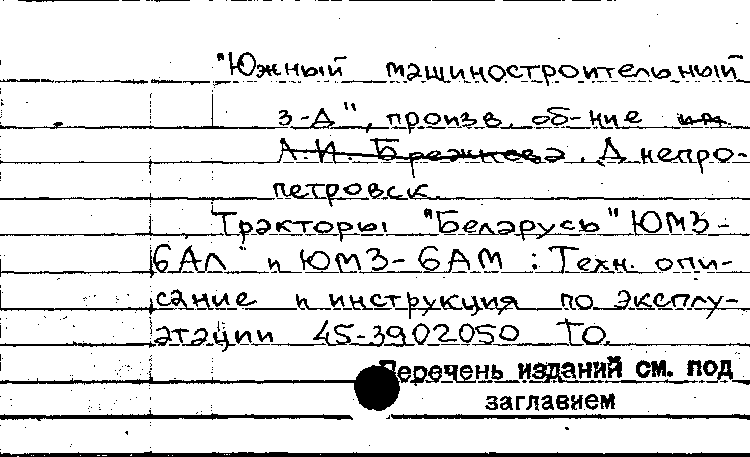 "Южный машиностроительный
з-д", произв. об-ние им.
А.И. Брежнева. Днепро-
петровск.
Тракторы "Беларусь" ЮМЗ-
6АЛ и ЮМЗ-6АМ : Техн. опи-
сание и инструкция по эксплу-
атации 45-3902050 ТО.
Перечень изданий см. под
заглавием